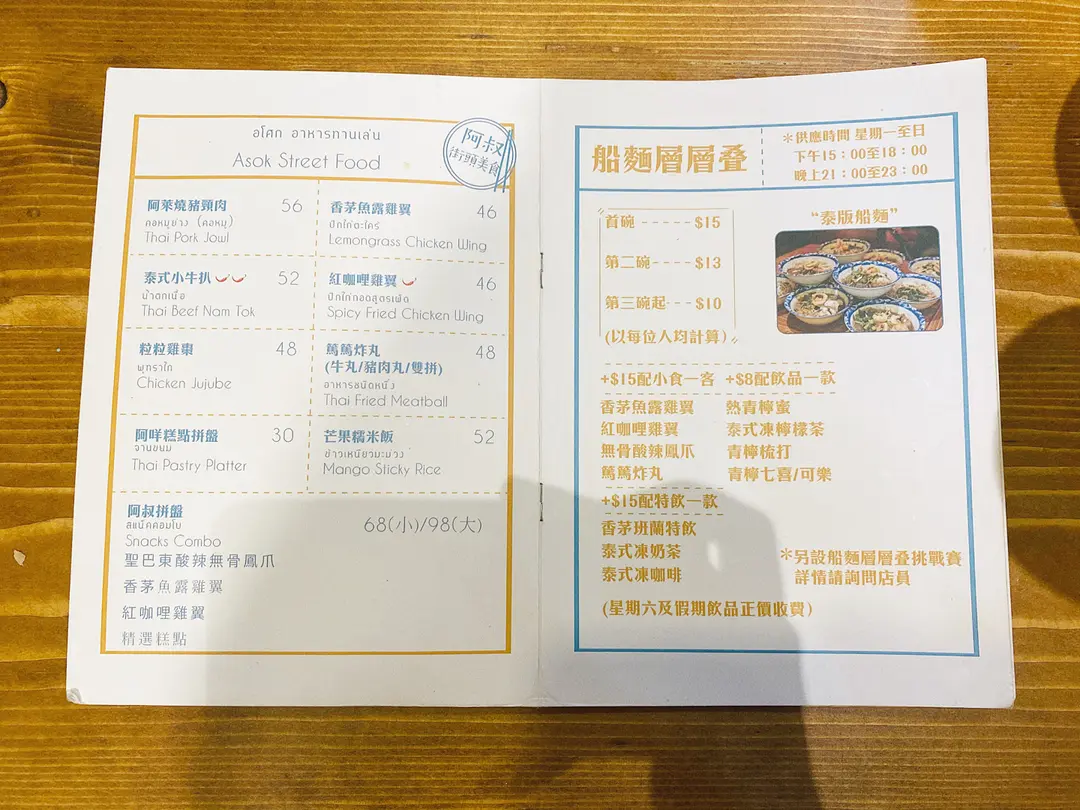 อโศก อาหารทานเล่น
Asok Street Food
阿叔
街頭美食
阿萊燒豬頸肉 56
คอหมูย่าง (คอหมู)
Thai Pork Jowl
香茅魚露雞翼 46
ปีกไก่ตะไคร้
Lemongrass Chicken Wing
泰式小牛扒 52
น้ำตกเนื้อ
Thai Beef Nam Tok
紅咖哩雞翼 46
ปีกไก่ทอดสูตรเผ็ด
Spicy Fried Chicken Wing
粒粒雞棗 48
พุทราไก่
Chicken Jujube
篤篤炸丸 48
(牛丸/豬肉丸/雙拼)
อาหารชนิดหนึ่ง
Thai Fried Meatball
阿咩糕點拼盤 30
จานขนม
Thai Pastry Platter
芒果糯米飯 52
ข้าวเหนียวมะม่วง
Mango Sticky Rice
阿叔拼盤 68(小)/98(大)
สแน็คคอมโบ
Snacks Combo
聖巴東酸辣無骨鳳爪
香茅魚露雞翼
紅咖哩雞翼
精選糕點
船麵層層叠
*供應時間 星期一至日
下午15：00至18：00
晚上21：00至23：00
首碗 ------ $15
第二碗 ----- $13
第三碗起 --- $10
(以每位人均計算)
“泰版船麵”
+$15配小食一客 +$8配飲品一款
香茅魚露雞翼 熱青檸蜜
紅咖哩雞翼 泰式凍檸檬茶
無骨酸辣鳳爪 青檸梳打
篤篤炸丸 青檸七喜/可樂
+$15配特飲一款
香茅班蘭特飲
泰式凍奶茶
泰式凍咖啡
*另設船麵層層叠挑戰賽
詳情請詢問店員
(星期六及假期飲品正價收費)